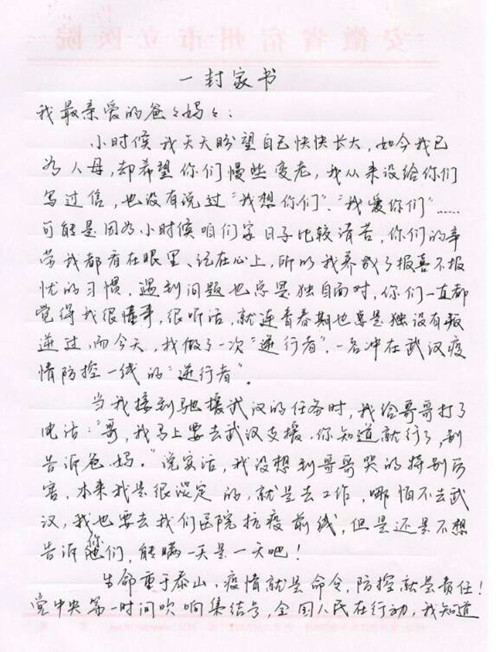 安徽省宿州市立医院
一封家书
我最亲爱的爸爸妈妈：
小时候我天天盼望自己快快长大，如今我已
为人母，却希望你们慢些变老，我从来没给你们
写过信，也没有说过“我想你们”、“我爱你们”……
可能是因为小时候咱们家日子比较清苦，你们的辛
劳我都看在眼里、记在心上，所以我养成了报喜不报
忧的习惯，遇到问题也总是独自面对，你们一直都
觉得我很懂事，很听话，就连青春期也总是独没有叛
逆过，而今天，我做了一次“逆行者”，一名冲在武汉疫
情防控一线的“逆行者”。
当我接到驰援武汉的任务时，我给哥哥打了
电话：“哥，我马上要去武汉支援，你知道就行了，别
告诉爸、妈。”说实话，我没想到哥哥哭的特别厉
害，本来我是很淡定的，就是去工作，哪怕不去武
汉，我也要去我们医院抗疫前线，但是还是不想
告诉你们，能瞒一天是一天吧！
生命重于泰山，疫情就是命令，防控就是责任！
党中央第一时间吹响集结号，全国人民在行动，我知道